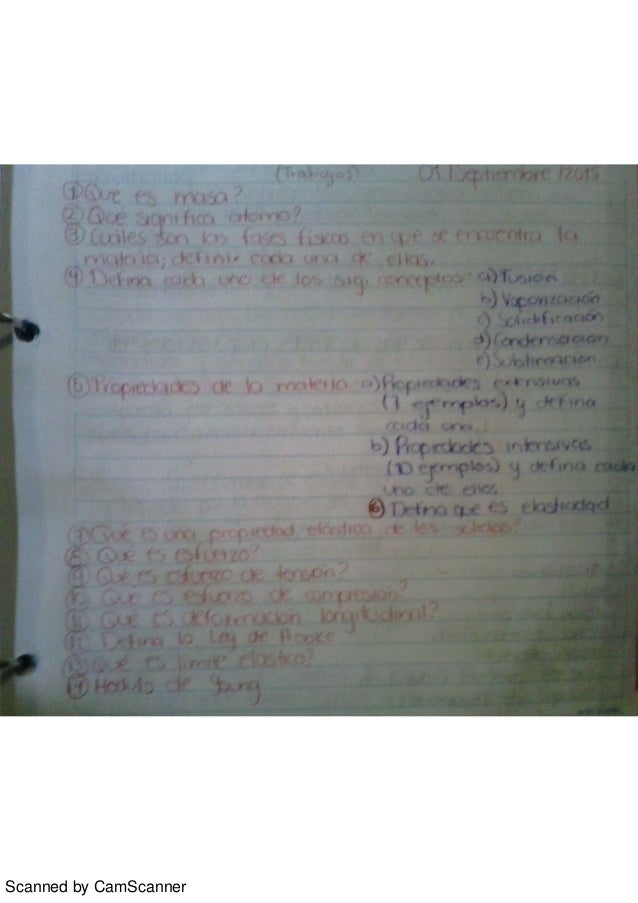 (Trabajos) 01/Septiembre/2015
① Que es masa?
② Que significa atomo?
③ Cuáles son las fases físicas en que se encuentra la
materia; definir cada una de ellas.
④ Defina cada uno de los sig. conceptos: a) Fusión
b) Vaporización
c) Solidificación
d) Condensación
e) Sublimación
⑤ Propiedades de la materia a) Propiedades extensivas
(7 ejemplos) y defina
cada una.
b) Propiedades intensivas
(10 ejemplos) y defina cada
uno de ellos
⑥ Defina que es elasticidad
⑦ Qué es una propiedad elástica de los sólidos?
⑧ Qué es esfuerzo?
⑨ Qué es esfuerzo de tensión?
⑩ Que es esfuerzo de compresión?
⑪ Que es deformacion longitudinal?
⑫ Defina la Ley de Hooke
⑬ Qué es limite elastico?
⑭ Modulo de Young
Scanned by CamScanner